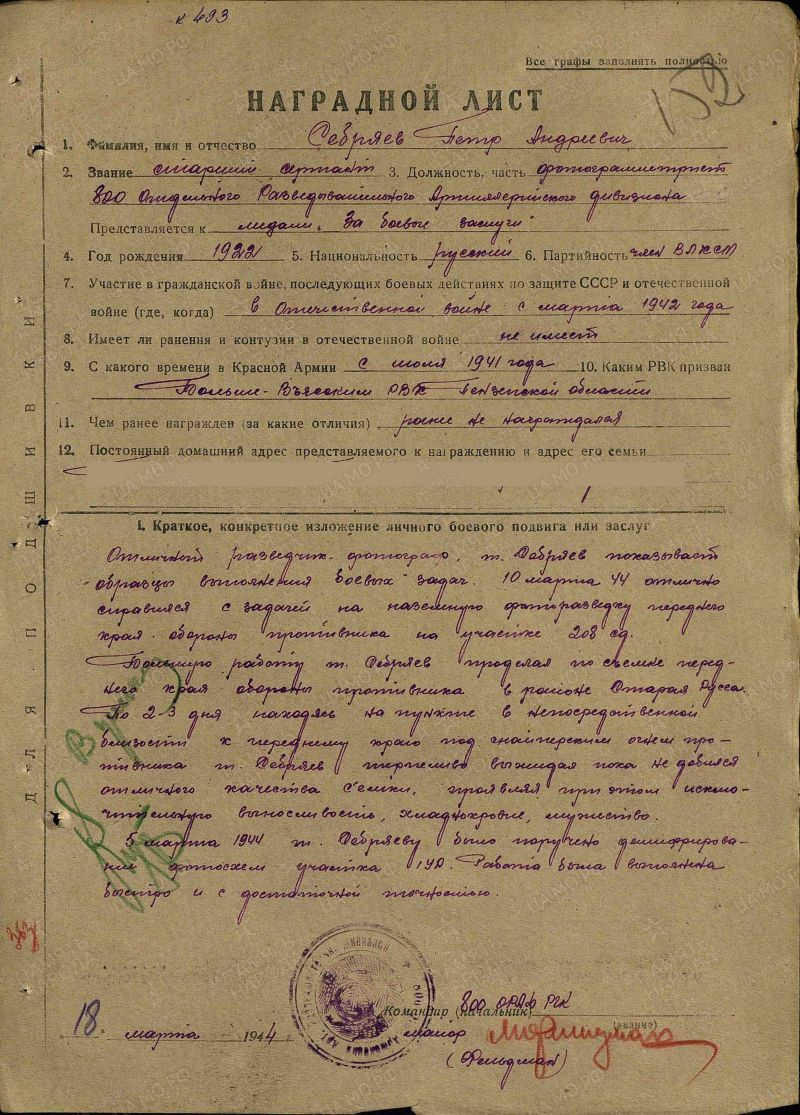 к 493
Все графы заполнять полностью
НАГРАДНОЙ ЛИСТ
1. Фамилия, имя и отчество Себряев Петр Андреевич
2. Звание старший сержант 3. Должность, часть фотограмметрист
800 Отдельного Разведывательного Артиллерийского дивизиона
Представляется к медали „За боевые заслуги“
4. Год рождения 1922 5. Национальность русский 6. Партийность член ВЛКСМ
7. Участие в гражданской войне, последующих боевых действиях по защите СССР и отечественной
войне (где, когда) в Отечественной войне с марта 1942 года
8. Имеет ли ранения и контузии в отечественной войне не имеет
9. С какого времени в Красной Армии с июля 1941 года 10. Каким РВК призван
Больше-Вьясским РВК Пензенской области
11. Чем ранее награжден (за какие отличия) ранее не награждался
12. Постоянный домашний адрес представляемого к награждению и адрес его семьи
I. Краткое, конкретное изложение личного боевого подвига или заслуг
Отличный разведчик-фотограф, т. Себряев показывает
образцы выполнения боевых задач. 10 марта 44 отлично
справился с задачей на наземную фоторазведку переднего
края обороны противника на участке 208 сд.
Большую работу т. Себряев проделал по съемке перед-
него края обороны противника в районе Старая Русса.
По 2-3 дня находясь на пункте в непосредственной
близости к переднему краю под снайперским огнем про-
тивника т. Себряев терпеливо выжидал пока не добился
отличного качества съемки, проявляя при этом исклю-
чительную выносливость, хладнокровие, мужество.
5 марта 1944 т. Себряеву было поручено дешифрирова-
ние фотосхем участка 1УР. Работа была выполнена
быстро и с достаточной точностью.
ДЛЯ ПОДШИВКИ
363
Командир (начальник) 800 ОРАД РГК
18 марта 1944 г. майор
(Фельдман)